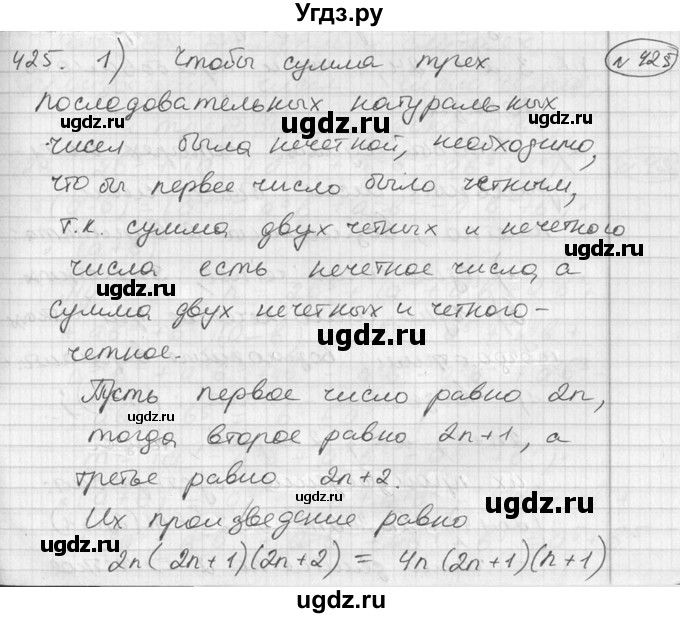 Угдз.ру
425. 1) Чтобы сумма трех
№ 425
последовательных натуральных
ugdz.ru ugdz.ru
чисел была нечетной, необходимо,
что бы первее число было четным,
ugdz.ru ugdz.ru
т.к. сумма двух четных и нечетного
числа есть нечетное число, а
ugdz.ru
сумма двух нечетных и четного -
ugdz.ru
четное.
Пусть первое число равно 2n,
ugdz.ru
тогда второе равно 2n+1, а
третье равно 2n+2.
ugdz.ru ugdz.ru
Их произведение равно
ugdz.ru
2n(2n+1)(2n+2) = 4n(2n+1)(n+1)
ugdz.ru